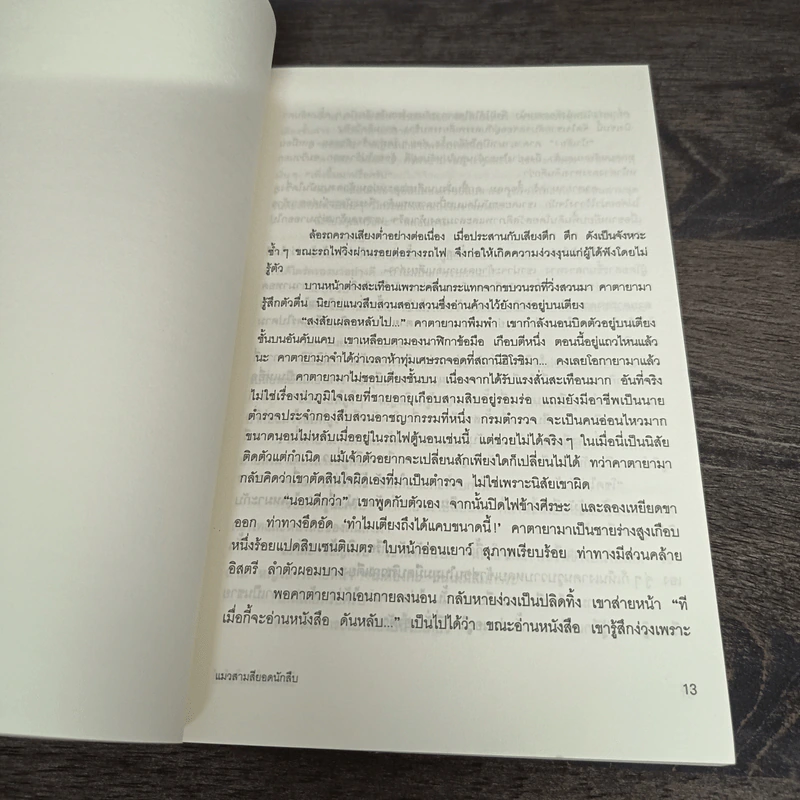 ล้อรถครางเสียงต่ำอย่างต่อเนื่อง เมื่อประสานกับเสียงตึก ตึก ดังเป็นจังหวะ
ซ้ำๆ ขณะรถไฟวิ่งผ่านรอยต่อรางรถไฟ จึงก่อให้เกิดความง่วงงุนแก่ผู้ได้ฟังโดยไม่
รู้ตัว
บานหน้าต่างสะเทือนเพราะคลื่นกระแทกจากขบวนรถที่วิ่งสวนมา คาตายามา
รู้สึกตัวตื่น นิยายแนวสืบสวนสอบสวนซึ่งอ่านค้างไว้ยังกางอยู่บนเตียง
"สงสัยเผลอหลับไป..." คาตายามาพึมพำ เขากำลังนอนปิดตัวอยู่บนเตียง
ชั้นบนอันคับแคบ เขาเหลือบตามองนาฬิกาข้อมือ เกือบตีหนึ่ง ตอนนี้อยู่แถวไหนแล้ว
นะ คาตายามาจำได้ว่าเวลาห้าทุ่มเศษรถจอดที่สถานีฮิโรชิมา... คงเลยโอกายามาแล้ว
คาตายามาไม่ชอบเตียงชั้นบน เนื่องจากได้รับแรงสั่นสะเทือนมาก อันที่จริง
ไม่ใช่เรื่องน่าภูมิใจเลยที่ชายอายุเกือบสามสิบอยู่รอมร่อ แถมยังมีอาชีพเป็นนาย
ตำรวจประจำกองสืบสวนอาชญากรรมที่หนึ่ง กรมตำรวจ จะเป็นคนอ่อนไหวมาก
ขนาดนอนไม่หลับเมื่ออยู่ในรถไฟตู้นอนเช่นนี้ แต่ช่วยไม่ได้จริงๆ ในเมื่อนี่เป็นนิสัย
ติดตัวแต่กำเนิด แม้เจ้าตัวอยากจะเปลี่ยนสักเพียงใดก็เปลี่ยนไม่ได้ ทว่าคาตายามา
กลับคิดว่าเขาตัดสินใจผิดเองที่มาเป็นตำรวจ ไม่ใช่เพราะนิสัยเขาผิด
"นอนดีกว่า" เขาพูดกับตัวเอง จากนั้นปิดไฟข้างศีรษะ และลองเหยียดขา
ออก ท่าทางอึดอัด 'ทำไมเตียงถึงได้แคบขนาดนี้!' คาตายามาเป็นชายร่างสูงเกือบ
หนึ่งร้อยแปดสิบเซนติเมตร ใบหน้าอ่อนเยาว์ สุภาพเรียบร้อย ท่าทางมีส่วนคล้าย
อิสตรี ลำตัวผอมบาง
พอคาตายามาเอนกายลงนอน กลับหายง่วงเป็นปลิดทิ้ง เขาส่ายหน้า "ที
เมื่อกี้จะอ่านหนังสือ ดันหลับ..." เป็นไปได้ว่า ขณะอ่านหนังสือ เขารู้สึกง่วงเพราะ
แมวสามสียอดนักสืบ
13